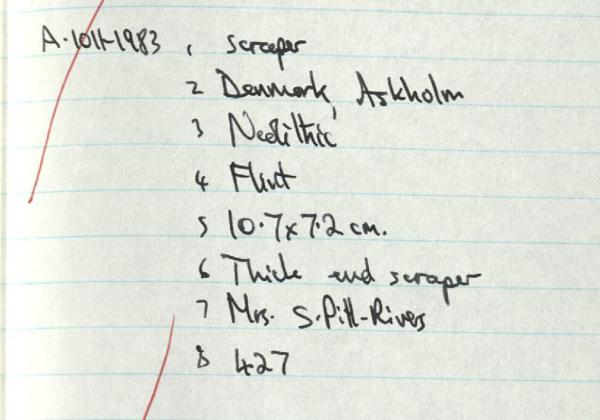 A·1011-1983 1 scraper
2 Denmark, Askholm
3 Neolithic
4 Flint
5 10·7 x 7·2 cm.
6 Thick end scraper
7 Mrs. S. Pitt-Rivers
8 427